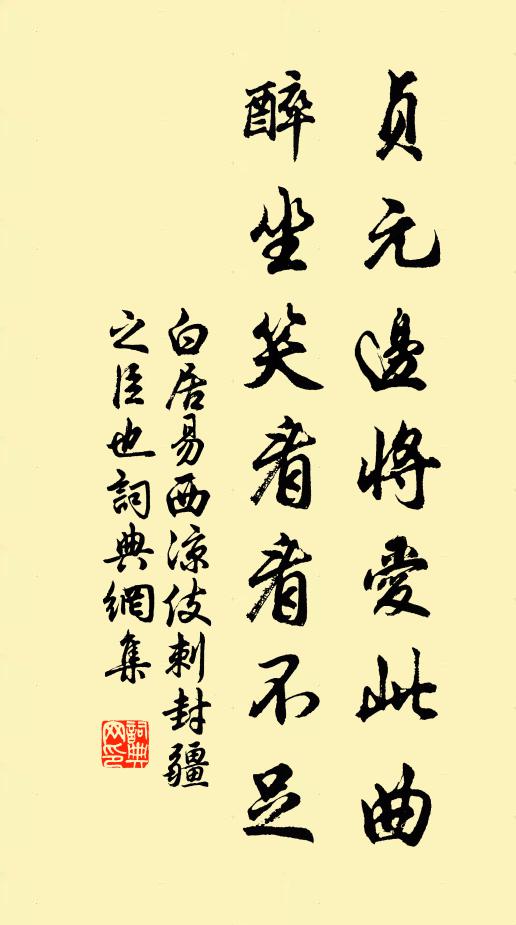 貞元邊將愛此曲
醉坐笑看看不足
白居易西涼伎刺封疆
之臣也詞典網集
詞典
网印